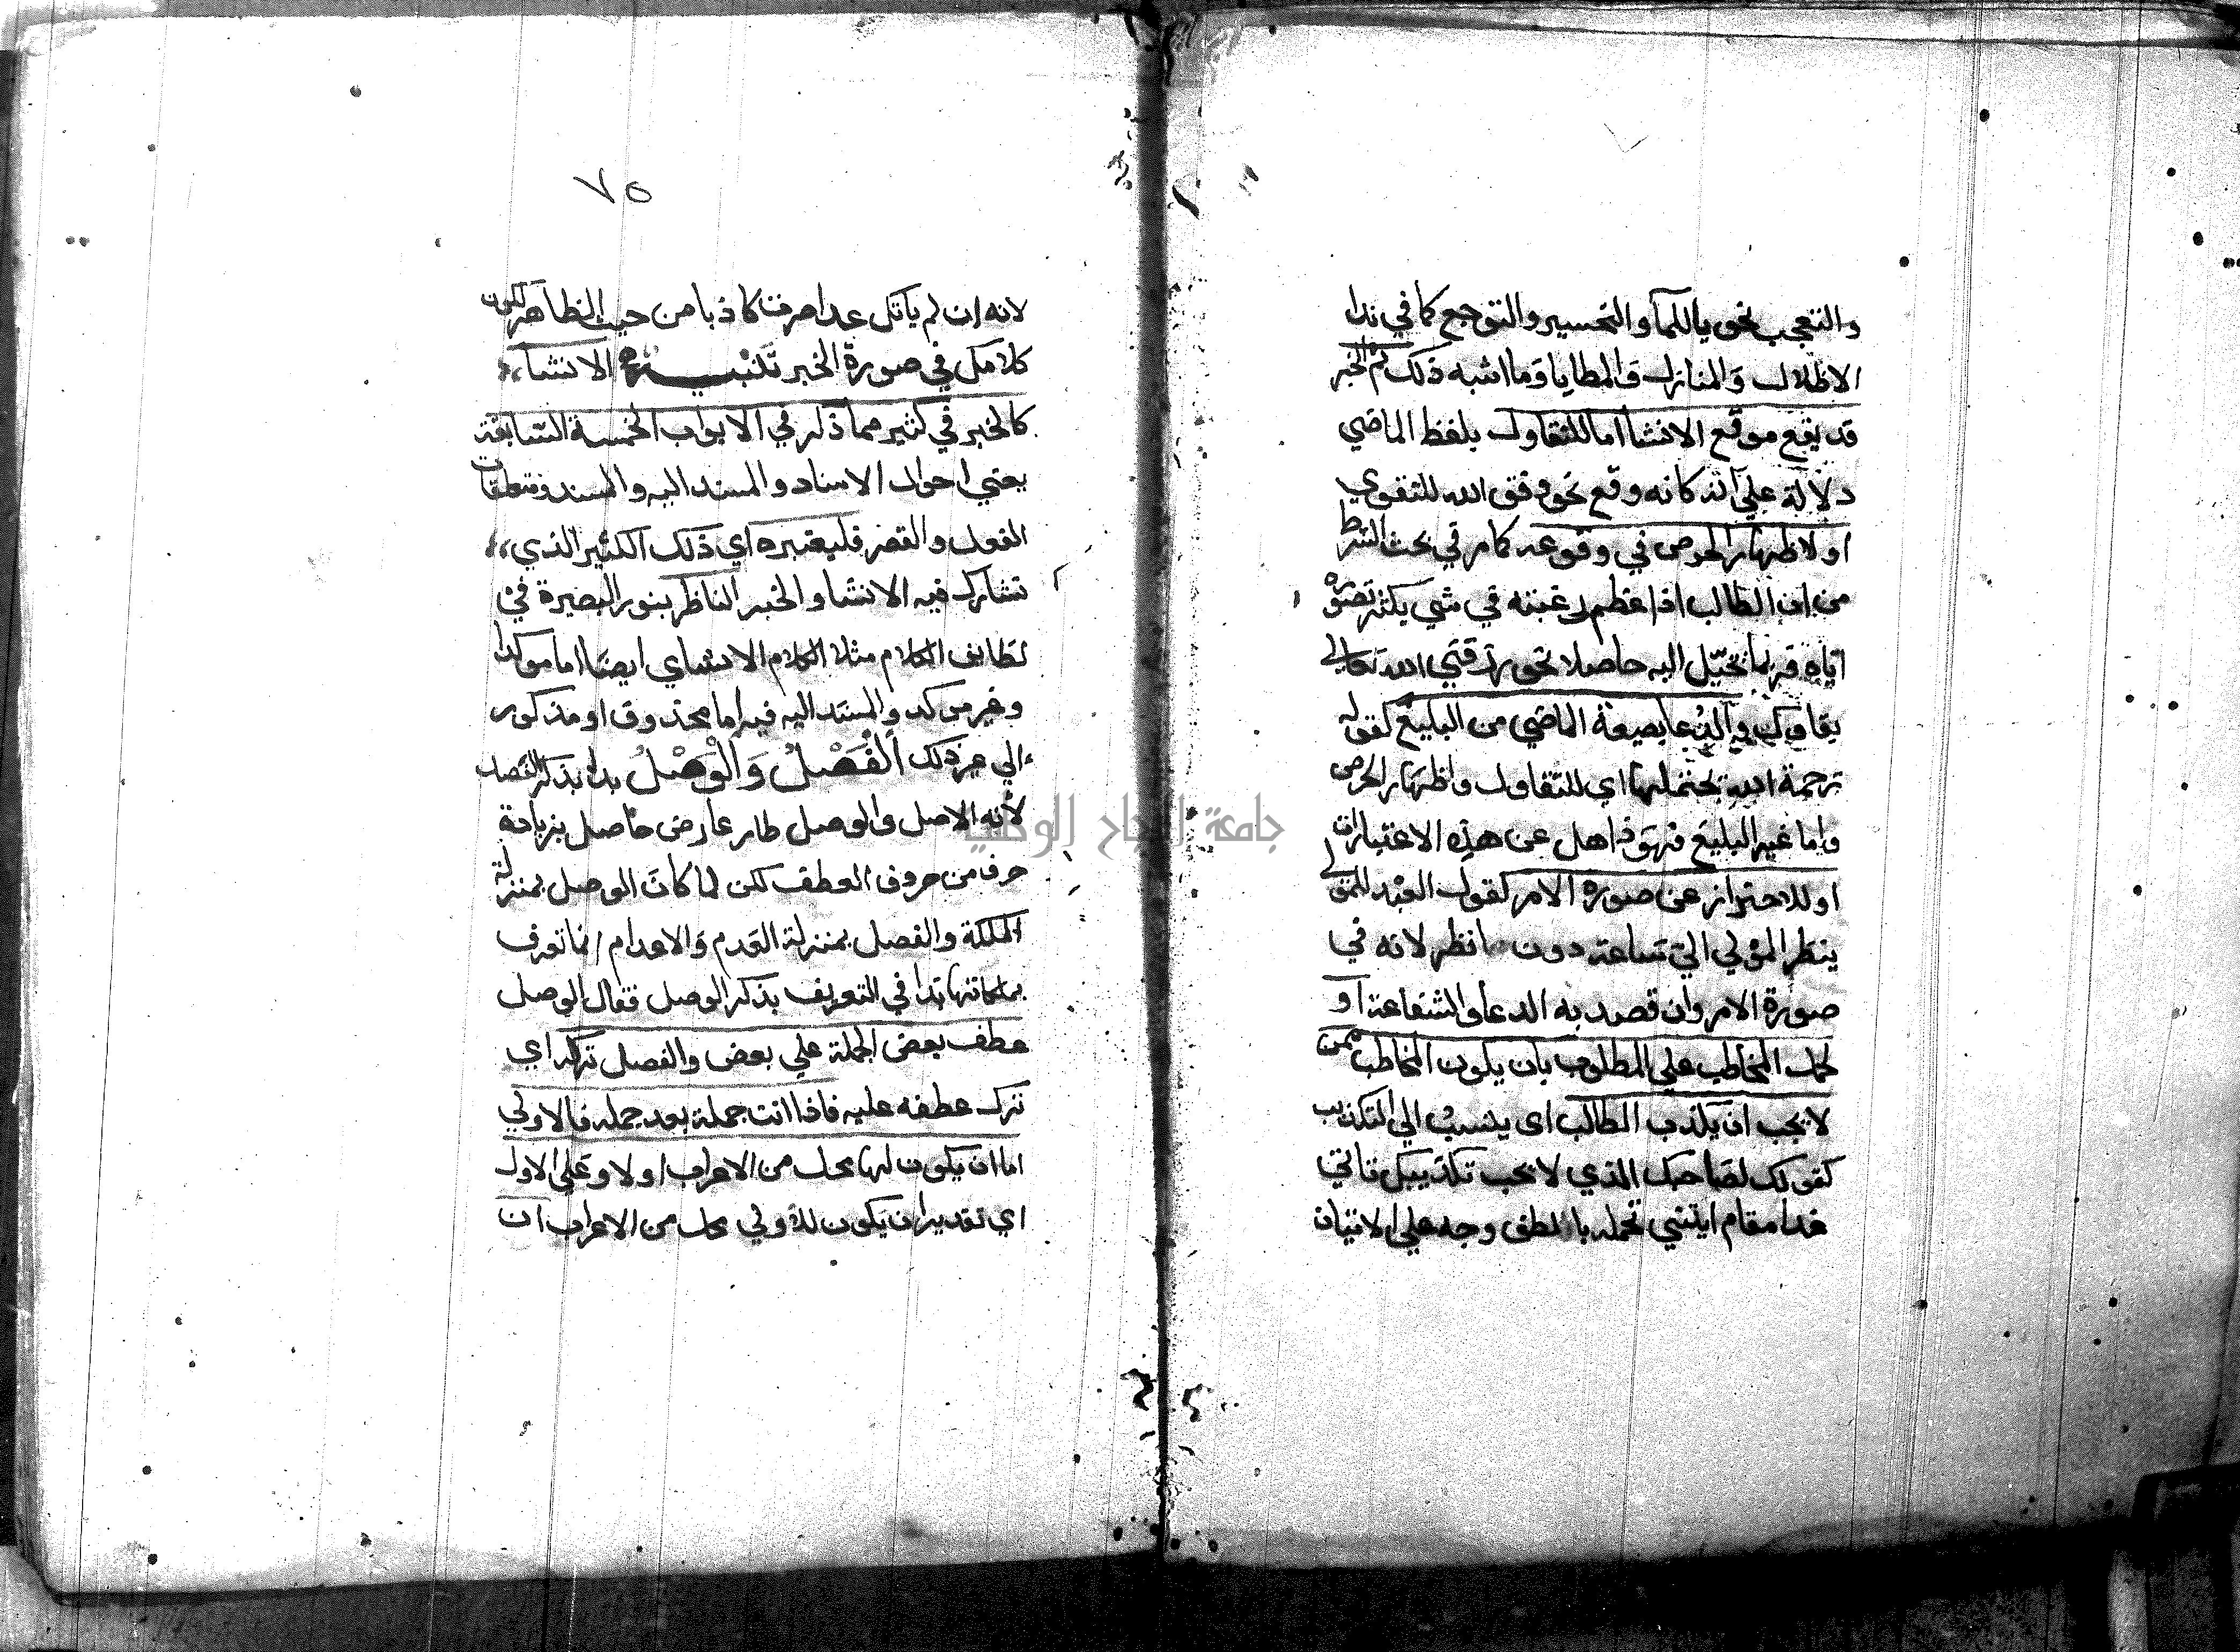 والتعجب نحو ياللماء والتحسير والتوجع كما في ندا
الاطلال والمنازل والمطايا وما اشبه ذلك ثم الخبر
قد يقع موقع الانشا اما للتفاول بلفظ الماضي
دلالة علي انه كانه وقع نحو وفقك الله للتقوي
او لاظهار الحرص في وقوعه كما مر في بحث الشرط
من ان الطالب اذا عظم رغبته في شي يكثر تصوره
اياه فربما يخيل اليه حاصلا نحو رزقني الله تعالي
لقاوك والدعا بصيغة الماضي من البليغ كقوله
رحمة الله يحتملها اي للتفاول واظهار الحرص
واما غير البليغ فهو ذاهل عن هذه الاعتبارات
او للاحتراز عن صورة الامر كقول العبد للمولي
ينظر المولي الي ساعة دون انظر لانه في
صورة الامر وان قصد به الدعا والشفاعة او
لحمل المخاطب علي المطلوب بان يكون المخاطب ممن
لا يحب ان يكذب الطالب اي ينسب الي التكذيب
كقولك لصاحبك الذي لا يحب تكذيبك تاتي
غدا مقام ايتني تحمله بالطف وجه علي الاتيان
٧٥
لانه ان لم ياتك غدا صرت كاذبا من حيث الظاهر لكون
كلامك في صورة الخبر تنبيه الانشاء
كالخبر في كثير مما ذكر في الابواب الخمسة السابقة
يعني احوال الاسناد والمسند اليه والمسند ومتعلقات
الفعل والقصر فليعتبره اي ذلك الكثير الذي
تشارك فيه الانشا والخبر الناظر بنور البصيرة في
لطايف الكلام مثلا الكلام الانشاي ايضا اما موكدا
وغير موكد والمسند اليه فيه اما محذوف او مذكور
الي غير ذلك الفَصْلُ وَالْوَصْلُ بدا بذكر الفصل
لانه الاصل والوصل طار عارض حاصل بزيادة
حرف من حروف العطف لكن لما كان الوصل بمنزلة
الملكة والفصل بمنزلة العدم والاعدام انما تعرف
بملكاتها بدا في التعريف بذكر الوصل فقال الوصل
عطف بعض الجملة علي بعض والفصل تركه اي
ترك عطفه عليه فاذا اتت جملة بعد جملة فالاولي
اما ان يكون لها محل من الاعراب او لا وعلي الاول
اي تقدير ان يكون للاولي محل من الاعراب ان
جامعة النجاح الوطنية